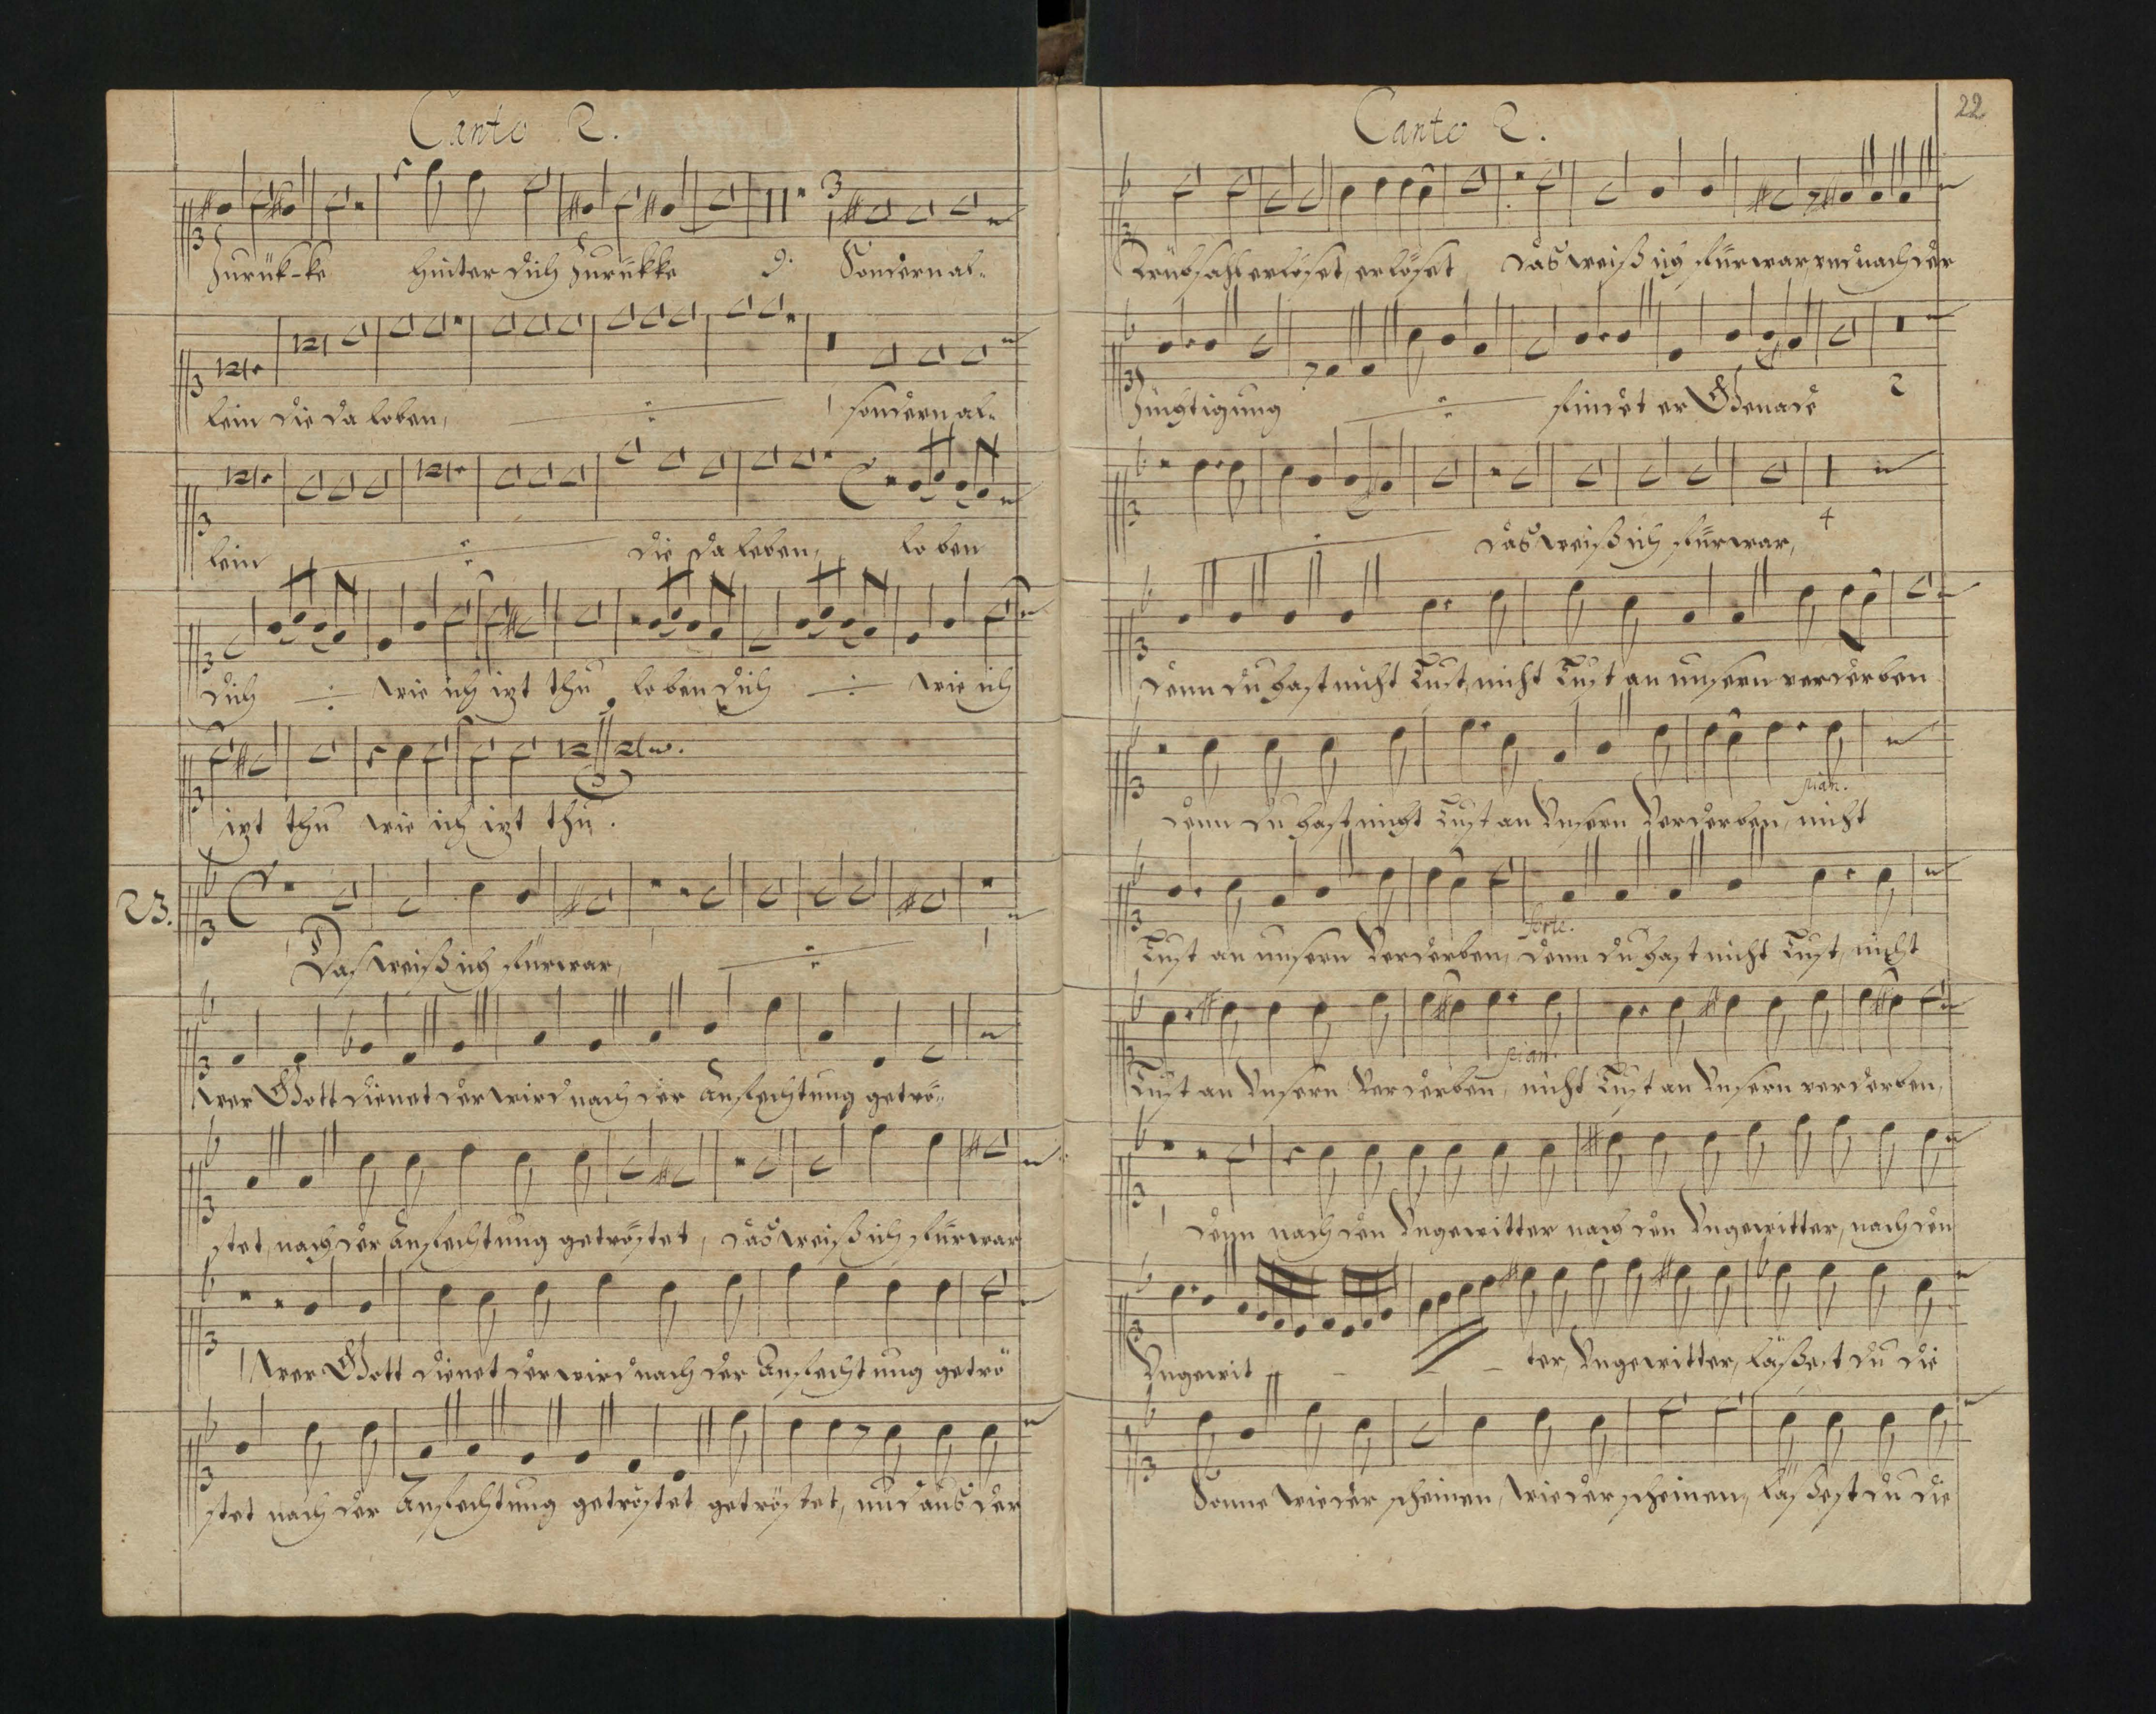 Canto 2.
Zurük-ke hinter dich Zurükke 9. Sondern al-
lein die da loben, sondern al-
lein die da loben, loben
dich wie ich izt thu loben dich wie ich
izt thu wie ich izt thu.
23.
Das weiß ich fürwar,
Wer Gott dienet der wird nach der Anfechtung getrö-
stet, nach der Anfechtung getröstet, das weiß ich fürwar
Wer Gott dienet der wird nach der Anfechtung getrö
stet nach der Anfechtung getröstet getröstet, und aus der
Canto 2.
22
Trübsahl erlöset, erlöset das weiß ich fürwar, und nach der
Züchtigung findet er Genade 2
das weiß ich fürwar, 4
denn du hast nicht Lust, nicht Lust an unsern verderben
pian.
denn du hast nicht Lust an Unsern Verderben, nicht
forte.
Lust an unsern Verderben, denn du hast nicht Lust, nicht
pian.
Lust an Unsern Verderben, nicht Lust an Unsern verderben,
denn nach den Ungewitter nach den Ungewitter, nach den
Ungewit - - ter, Ungewitter, läßest du die
Sonne wieder scheinen, wieder scheinen, läßest du die